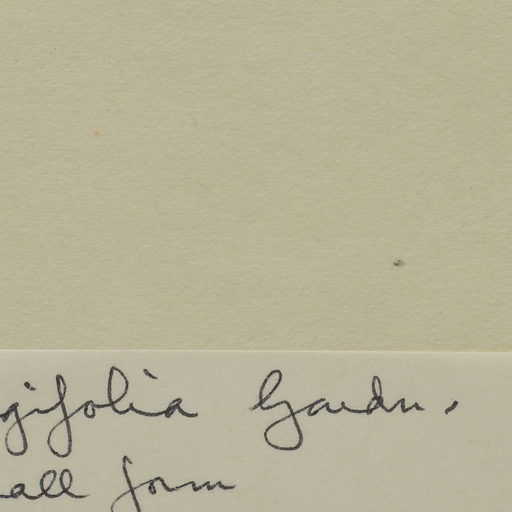 gifolia Gardn.
all form